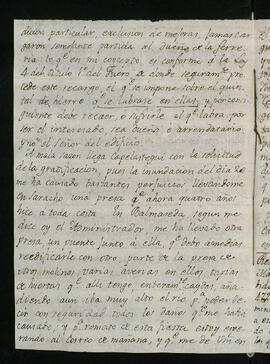 dicios particular, exclusion de mejoras, jamas car
garon semejante partida al dueño de la ferre
ria lo qe. en mi concepto, es conforme a la Ley
4 del titulo 1º del fuero a donde seguramte. pro
cede este recargo, el qe. se impone sobre el quin
tal de hierro qe. se labrase en ellas, y por consi
guiente debe recaer, o sufrirle el qe. labra, por
ser el interesado, sea dueño o arrendatario,
y no el Señor del edificio.
A mala sazon llega Capelastegui con la solicitud
de la gratificacion, pues la inundacion del dia 20
me ha causado bastantes perjuicios llevandome
en Saracho una presa qe. ahora quatro años
hice a toda costa. En Balmaseda, segun me
dice oy el Administrador, me ha llevado otra
presa, un puente junto a ella, qe. debo a medias
reedificarle con otro, parte de la presa de
otros molinos, varias averias en ellos, tapias
de huertas qe. alli tengo, enteram. caydas, aña
diendo aun iba muy alto el rio pa. poder de
cir con seguridad todos los daños qe. me havia
causado, y pr. remate de esta fiesta estoy espe
rando al correo de mañana, y qe. me de